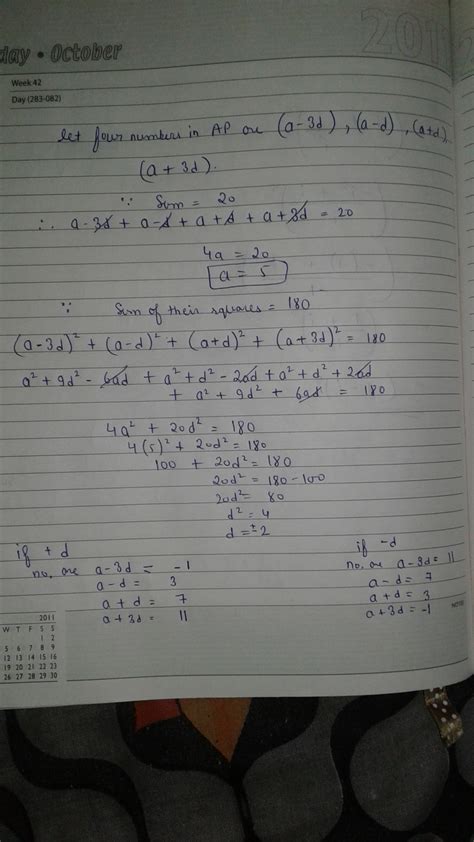 day • October
201
Week 42
Day (283-082)
let four numbers in AP are (a-3d), (a-d), (a+d),
(a+3d).
∵ Sum = 20
∴ a-3d + a-d + a+d + a+3d = 20
4a = 20
a = 5
∵ Sum of their squares = 180
(a-3d)² + (a-d)² + (a+d)² + (a+3d)² = 180
a² + 9d² - 6ad + a² + d² - 2ad + a² + d² + 2ad
+ a² + 9d² + 6ad = 180
4a² + 20d² = 180
4(5)² + 20d² = 180
100 + 20d² = 180
20d² = 180-100
20d² = 80
d² = 4
d = ±2
if +d
no, are a-3d = -1
a-d = 3
a+d = 7
a+3d = 11
if -d
no, are a-3d = 11
a-d = 7
a+d = 3
a+3d = -1
2011
W T F S S
1 2
5 6 7 8 9
12 13 14 15 16
19 20 21 22 23
26 27 28 29 30